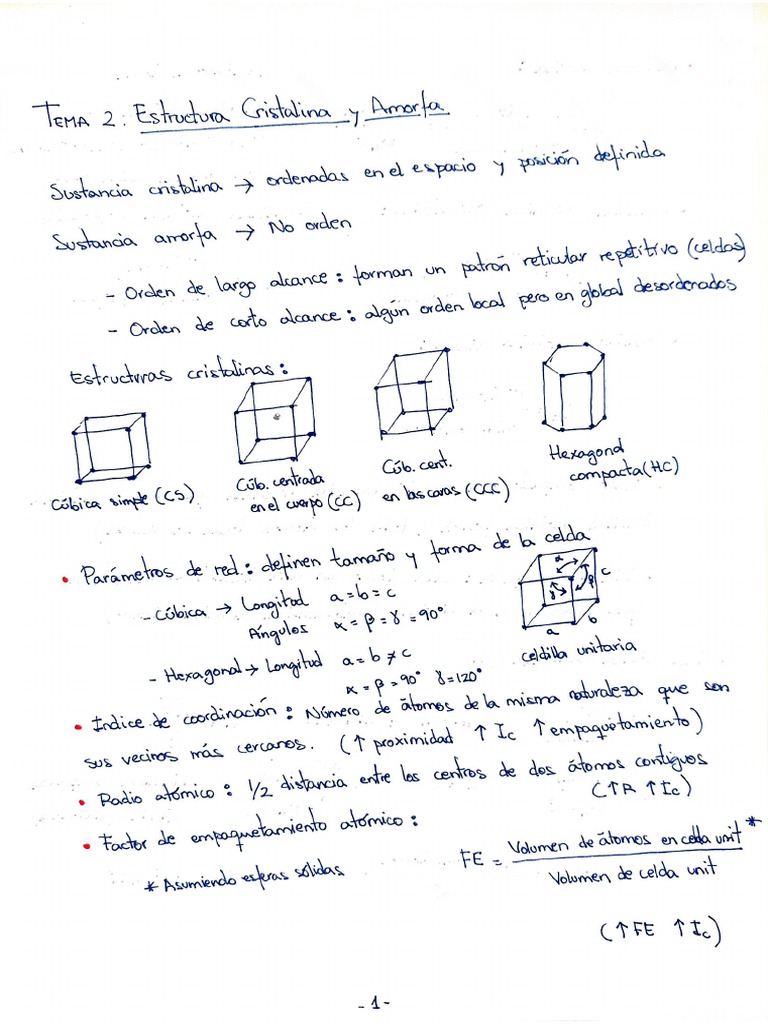 TEMA 2: Estructura Cristalina y Amorfa
Sustancia cristalina → ordenadas en el espacio y posición definida
Sustancia amorfa → No orden
- Orden de largo alcance: forman un patrón reticular repetitivo (celdas)
- Orden de corto alcance: algún orden local pero en global desordenados
Estructuras cristalinas:
Cúbica simple (CS)
Cúb. centrada
en el cuerpo (CC)
Cúb. cent.
en las caras (CCC)
Hexagonal
compacta (HC)
• Parámetros de red: definen tamaño y forma de la celda
- Cúbica → Longitud a = b = c
Ángulos α = β = γ = 90°
- Hexagonal → Longitud a = b ≠ c
α = β = 90° γ = 120°
α
β
γ
c
b
a
celdilla unitaria
• Indice de coordinación: Número de átomos de la misma naturaleza que son
sus vecinos más cercanos. (↑ proximidad ↑ Ic ↑ empaquetamiento)
• Radio atómico: 1/2 distancia entre los centros de dos átomos contiguos
(↑R ↑Ic)
• Factor de empaquetamiento atómico:
FE = Volumen de átomos en celda unit *
Volumen de celda unit
* Asumiendo esferas sólidas
(↑FE ↑Ic)
- 1 -